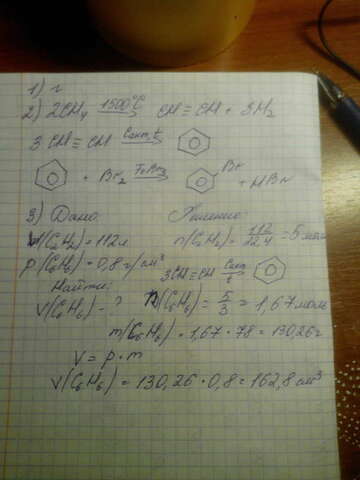 1) г
2) 2CH₄ 1500°C CH≡CH + 3H₂
3 CH≡CH Cакт, t
+ Br₂ FeBr₃ Br + HBr
3) Дано: Решение:
V(C₂H₂) = 112л n(C₂H₂) = 112/22,4 = 5 моль
ρ(C₆H₆) = 0,8 г/см³ 3CH≡CH Cакт t
Найти:
V(C₆H₆) - ? n(C₆H₆) = 5/3 = 1,67 моль
m(C₆H₆) = 1,67 · 78 = 130,26г
V = ρ · m
V(C₆H₆) = 130,26 · 0,8 = 162,8 см³